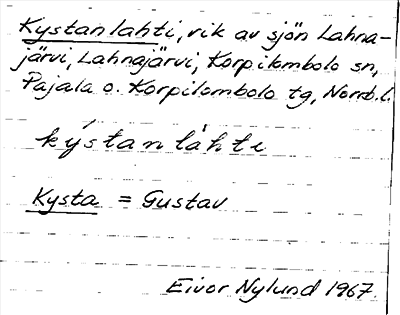 Kystanlahti, vik av sjön Lahna-
järvi, Lahnajärvi, Korpilombolo sn,
Pajala o. Korpilombolo tg, Norrb.l.
kýstanlàhti
Kysta = Gustav
Eivor Nylund 1967.